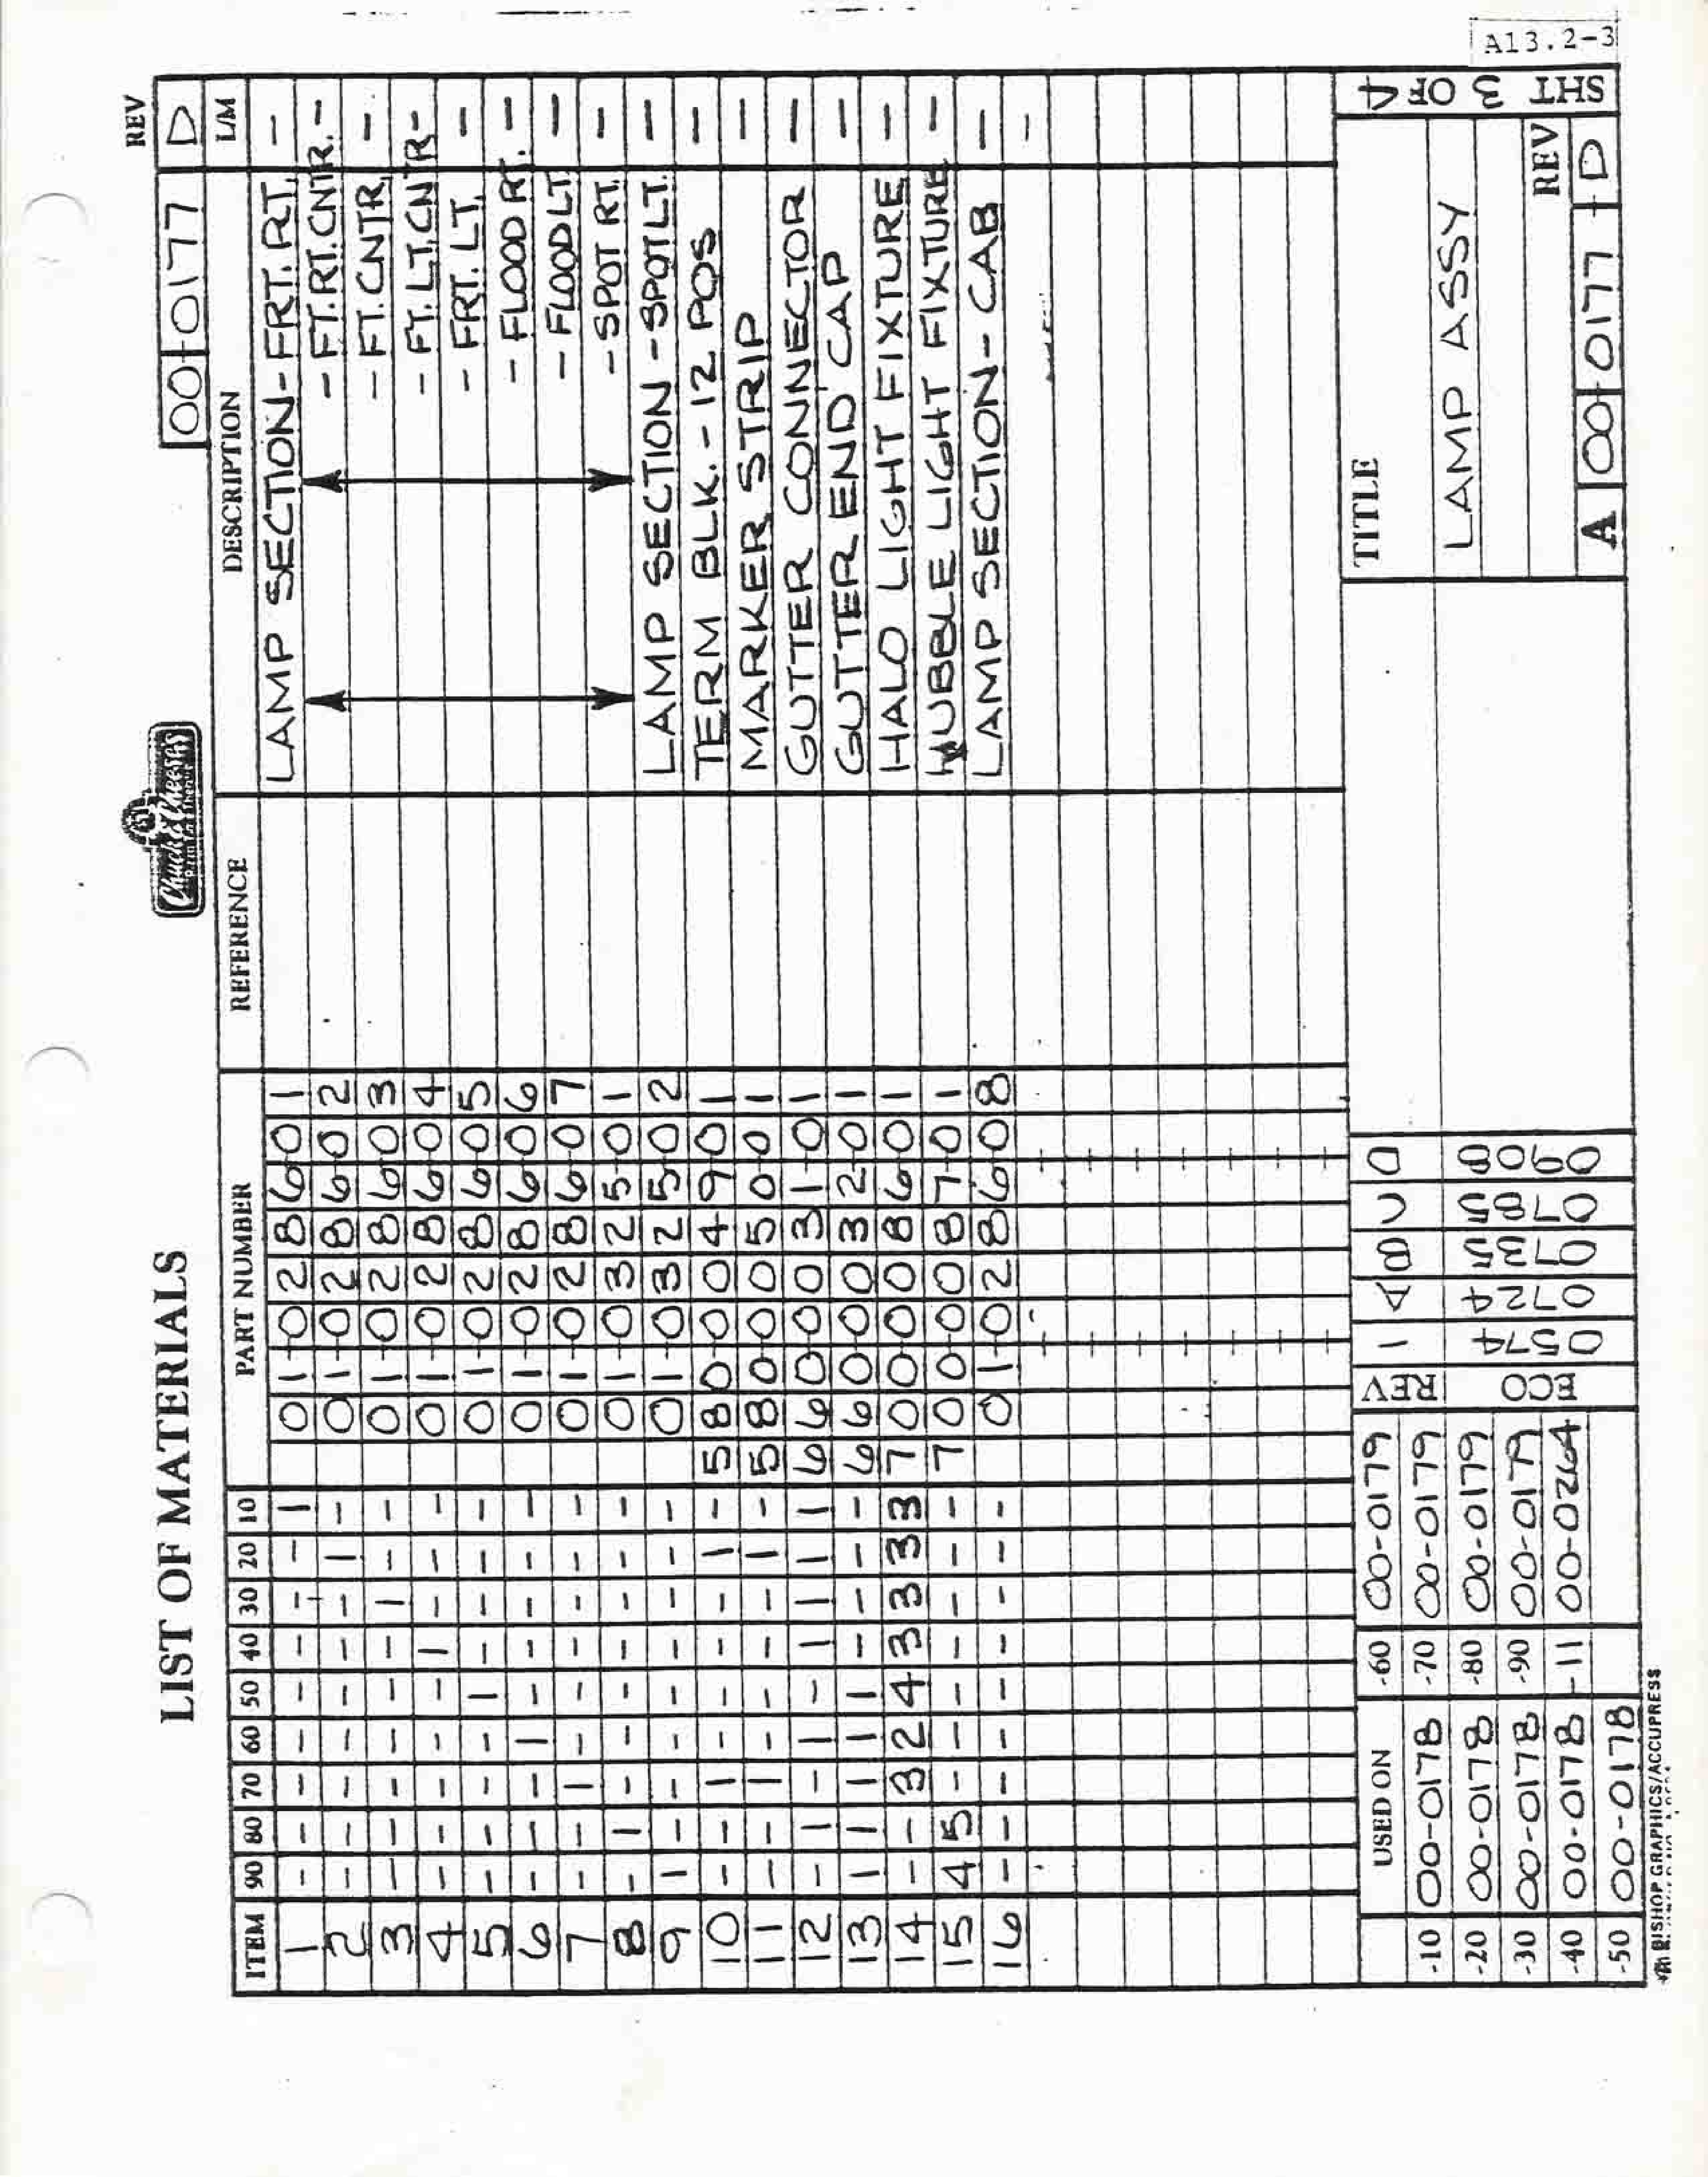 A13.2-3
LIST OF MATERIALS
Chuck E. Cheese's
00-0177
REV
D
ITEM 90 80 70 60 50 40 30 20 10 PART NUMBER REFERENCE DESCRIPTION L/M
1 - - - - - - - - 1 01-0286-01 LAMP SECTION - FRT. RT. -
2 - - - - - - - 1 - 01-0286-02 - FT. RT. CNTR. -
3 - - - - - - 1 - - 01-0286-03 - FT. CNTR. -
4 - - - - - 1 - - - 01-0286-04 - FT. LT. CNTR -
5 - - - - 1 - - - - 01-0286-05 - FRT. LT. -
6 - - - 1 - - - - - 01-0286-06 - FLOOD RT. -
7 - - 1 - - - - - - 01-0286-07 - FLOOD LT. -
8 - 1 - - - - - - - 01-0325-01 - SPOT RT. -
9 1 - - - - - - - - 01-0325-02 LAMP SECTION - SPOT LT. -
10 - - 1 - - - - 1 - 580-0049-01 TERM BLK. - 12 POS -
11 - - 1 - - - - 1 - 580-0050-01 MARKER STRIP -
12 - 1 - 1 - 1 1 1 1 660-0031-01 GUTTER CONNECTOR -
13 1 1 1 1 1 - - - - 660-0032-01 GUTTER END CAP -
14 - - 3 2 4 3 3 3 3 700-0086-01 HALO LIGHT FIXTURE -
15 4 5 - - - - - - - 700-0087-01 HUBBLE LIGHT FIXTURE -
16 - - - - - - - - - 01-0286-08 LAMP SECTION - CAB -
-
USED ON
-10 00-0178 -60 00-0179
-20 00-0178 -70 00-0179
-30 00-0178 -80 00-0179
-40 00-0178 -90 00-0179
-50 00-0178 -11 00-0264
REV - A B C D
ECO 0574 0724 0735 0785 0908
TITLE
LAMP ASSY
REV
A 00-0177 D
SHT 3 OF 4
BISHOP GRAPHICS/ACCUPRESS